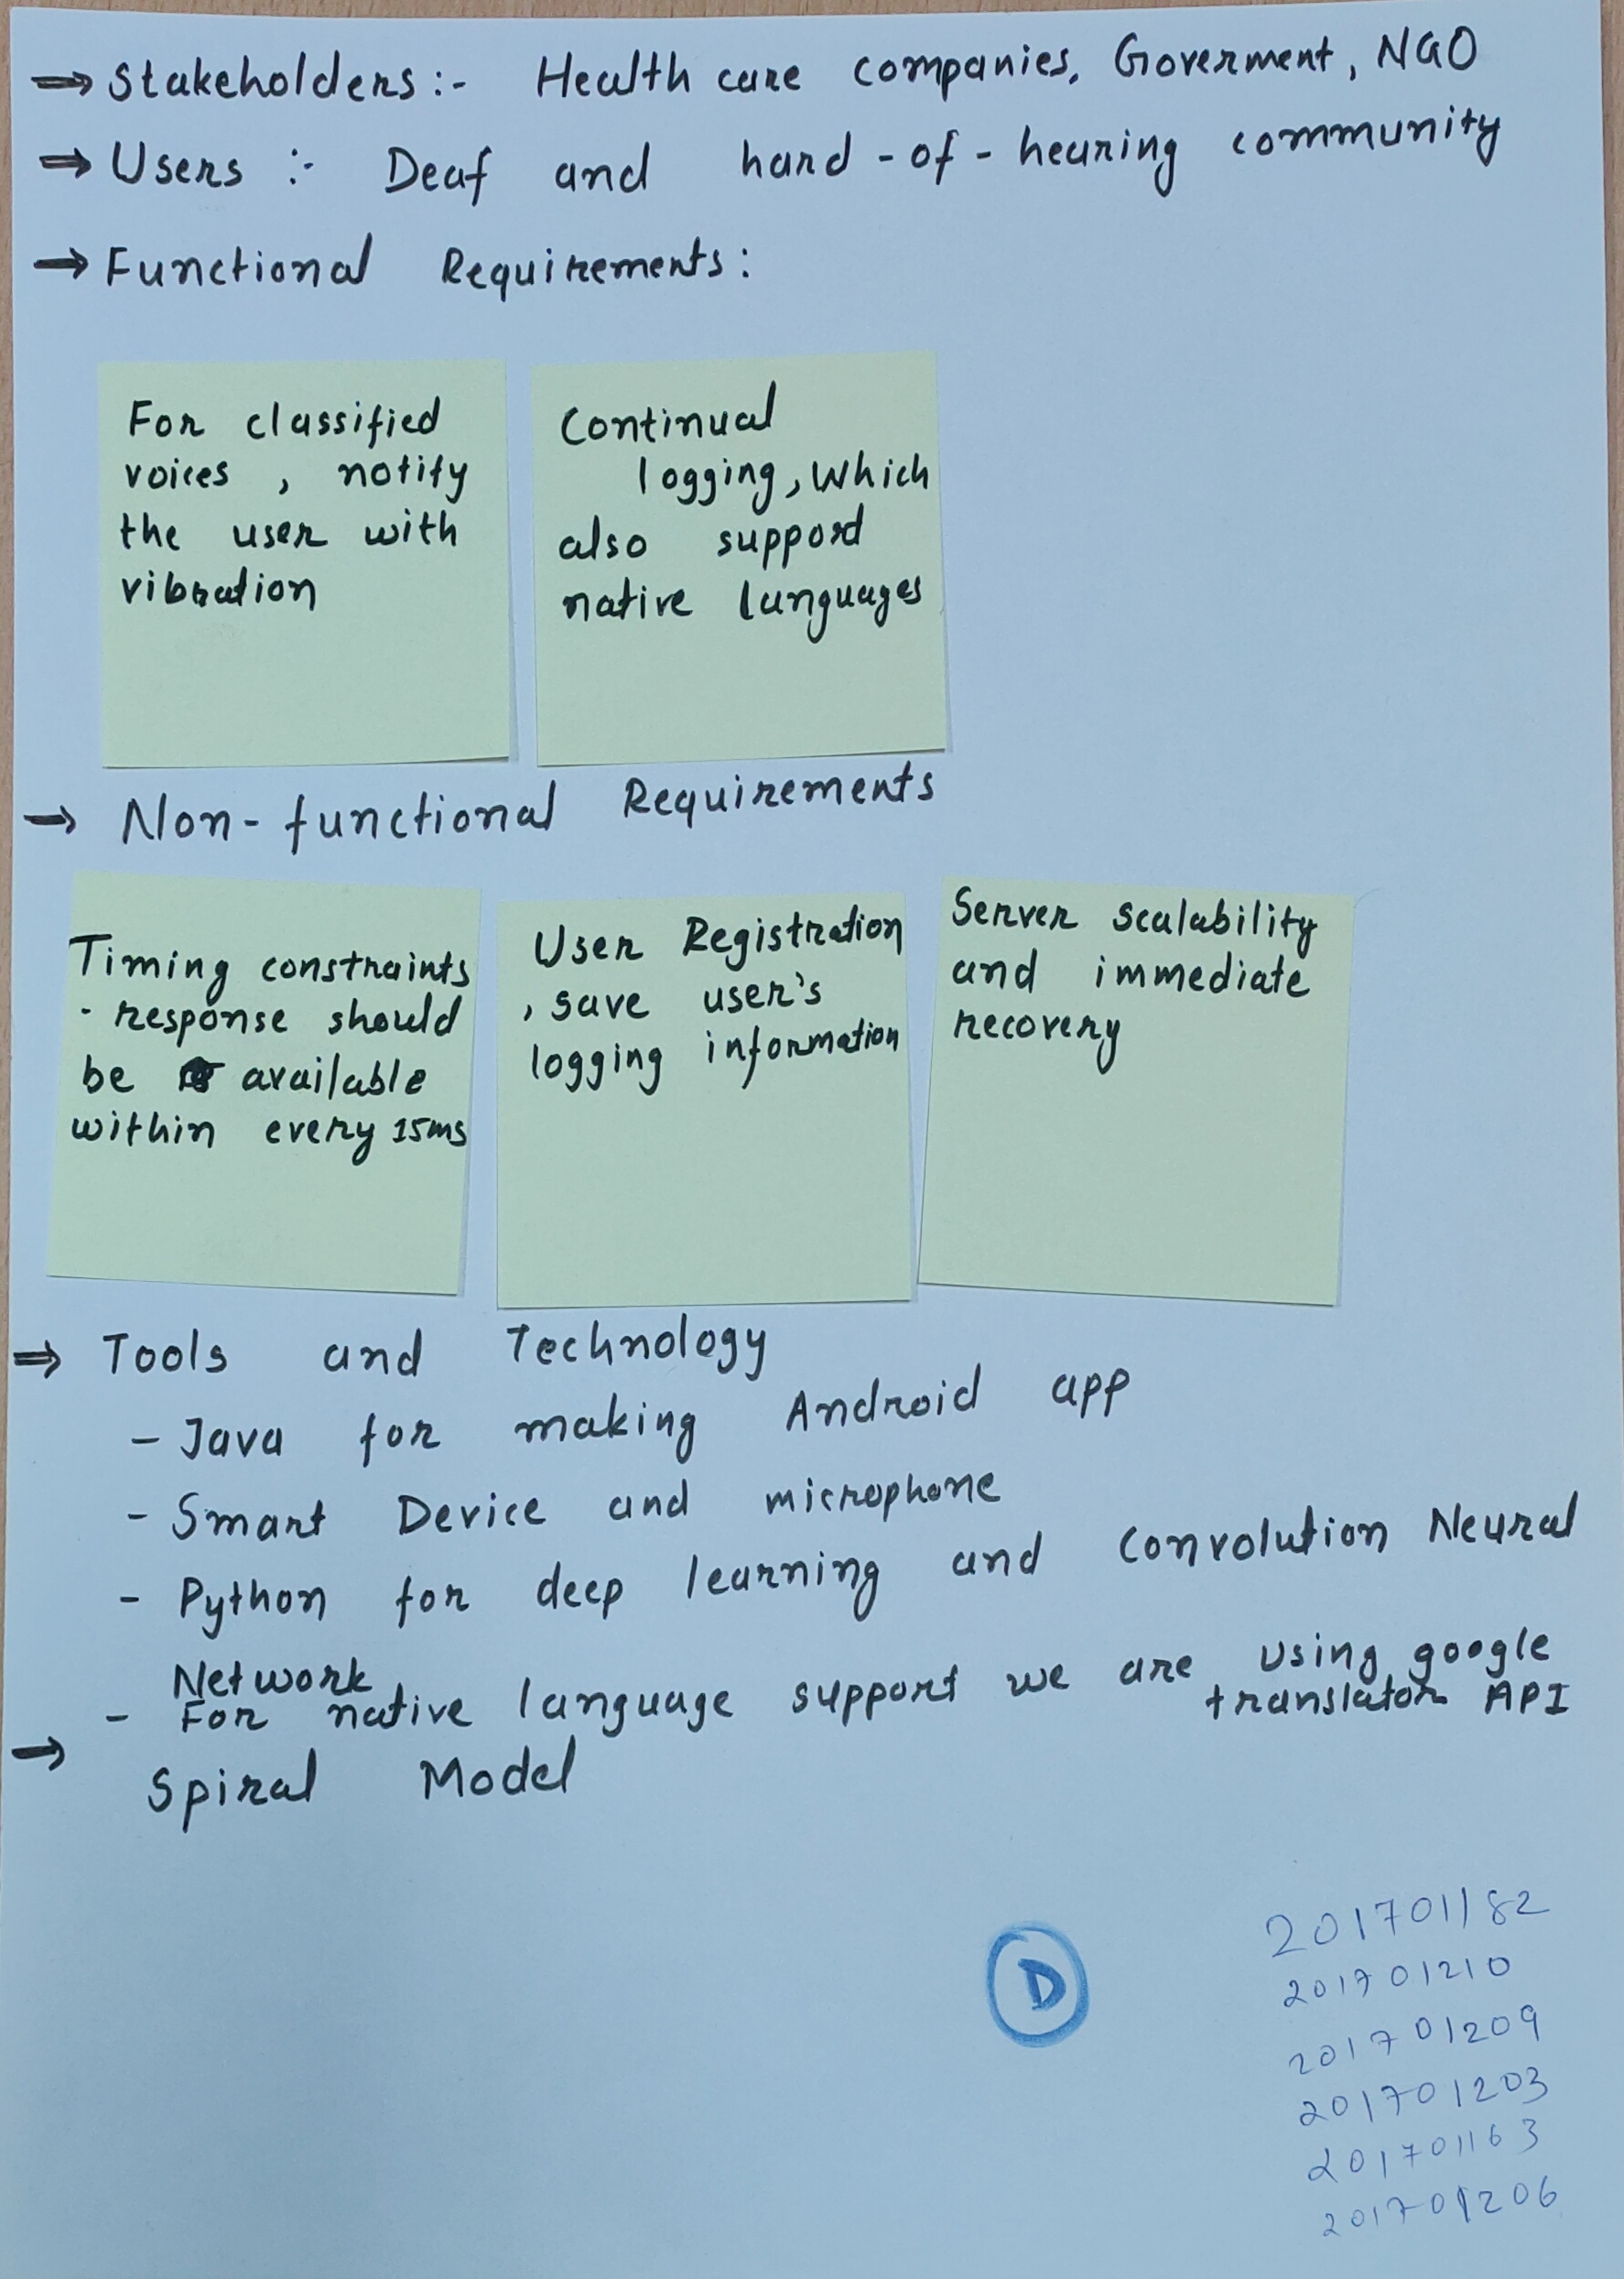 ⇒ Stakeholders :- Health care companies, Goverment, NGO
⇒ Users :- Deaf and hard-of-hearing community
⇒ Functional Requirements :
For classified
voices, notify
the user with
vibration
Continual
logging, Which
also support
native languages
→ Non-functional Requirements
Timing constraints
- response should
be available
within every 15ms
User Registration
, save user's
logging information
Server scalability
and immediate
recovery
⇒ Tools and Technology
- Java for making Android app
- Smart Device and microphone
- Python for deep learning and Convolution Neural
Network
- For native language support we are using google
translator API
→ Spiral Model
D
201701182
201701210
201701209
201701203
201701163
201701206